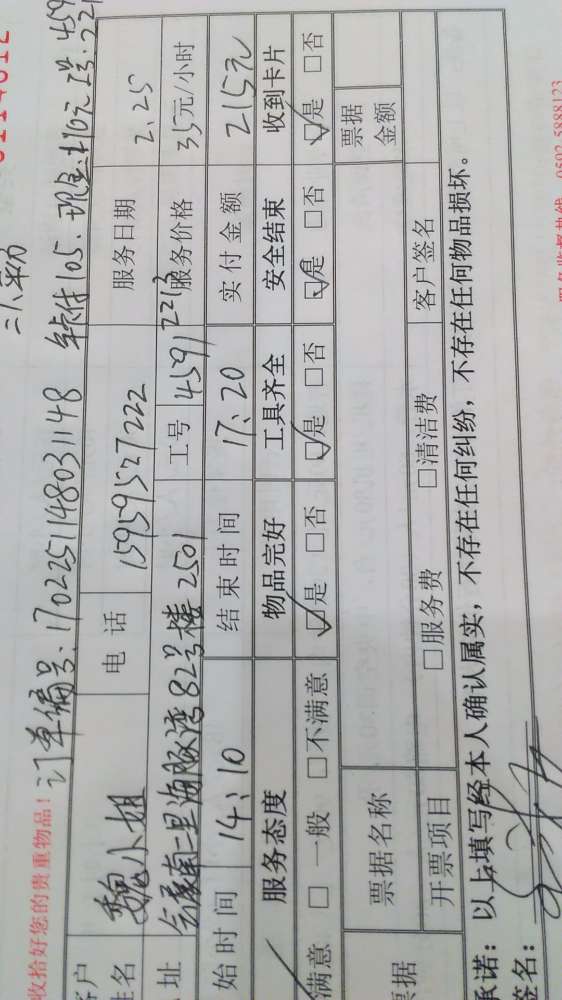 收拾好您的贵重物品!
订单编号:170225114803148
客户姓名 魏小姐 电话 15959527222 服务日期 2.25
址 会展南二里海豚湾82号楼2501 工号 4591 2213 服务价格 35元/小时
始时间 14:10 结束时间 17:20 实付金额 215元
服务态度 物品完好 工具齐全 安全结束 收到卡片
满意 □一般 □不满意 □是 □否 □是 □否 □是 □否 □是 □否
票据名称 票据金额
票据 开票项目 □服务费 □清洁费 客户签名
承诺:以上填写经本人确认属实,不存在任何纠纷,不存在任何物品损坏。
签名: